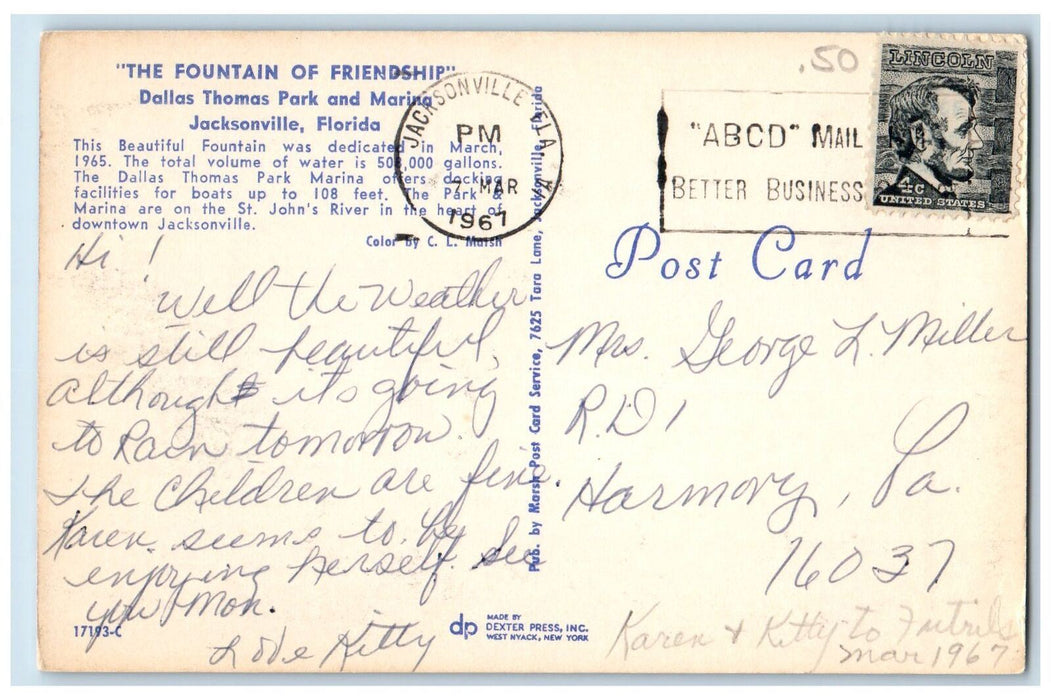 "THE FOUNTAIN OF FRIENDSHIP"
Dallas Thomas Park and Marina
Jacksonville, Florida
This Beautiful Fountain was dedicated in March,
1965. The total volume of water is 500,000 gallons.
The Dallas Thomas Park Marina offers docking
facilities for boats up to 108 feet. The Park &
Marina are on the St. John's River in the heart of
downtown Jacksonville.
Color by C. L. Marsh
Hi!
Well the Weather
is still beautiful,
although it's going
to Rain tomorrow.
The Children are fine.
Karen seems to be
enjoying herself. See
you Mon.
Love Kitty
17193-C
dp
MADE BY
DEXTER PRESS, INC.
WEST NYACK, NEW YORK
Pub. by Marsh Post Card Service, 7625 Tara Lane, Jacksonville, Florida
JACKSONVILLE FLA
PM
7 MAR
1967
.50
"ABCD" MAIL
BETTER BUSINESS
LINCOLN
4c
UNITED STATES
Post Card
Mrs. George L. Miller
R.D 1
Harmony, Pa.
16037
Karen & Kitty to
Mar 1967